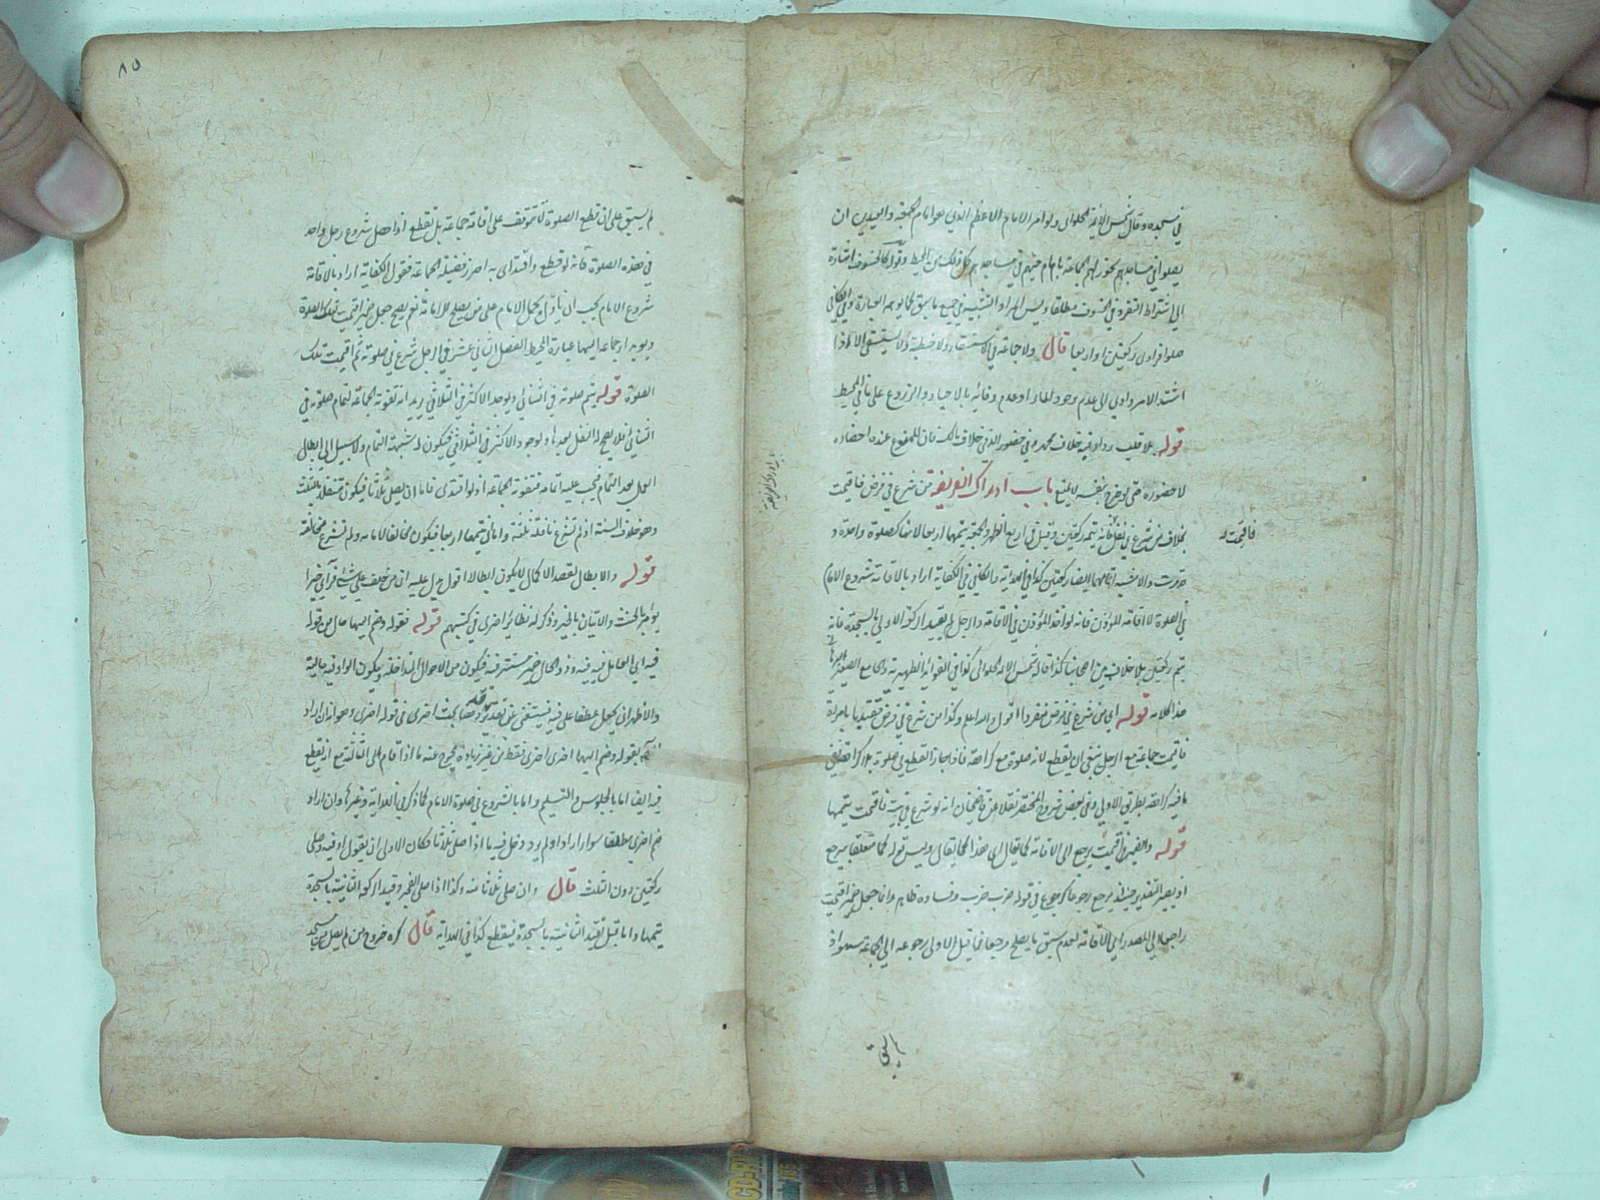 في مسجده وقال شمس الائمة الحلواني ولو امر الامام الاعظم الذي هو امام الجمعة والعيدين ان
يصلوا في مساجدهم يجوز لهم الجماعة بامام فيهم في مساجدهم كل ذلك من المحيط وقوله كالخسوف اشارة
الى اشتراط التفرد في الخسوف مطلقا وليس المراد التشبيه في جميع ما سبق كما يوهمه العبارة وفي الكافي
صلوا فرادى ركعتين او اربعا قال ولا جماعة في الاستسقاء ولا خطبة ولا يستسقى الا اذا
اشتد الامر وادى الى عدم وجود الماء او عدم وفائه بالاحياء والزروع على ما في المحيط
قوله بلا قلب رداء وفيه خلاف محمد وفي حضور الذمي خلاف مالك فان الممنوع عنده احضاره
لا حضوره حتى لو خرج بنفسه لا يمنع باب ادراك الفريضة من شرع في فرض فاقيمت
بخلاف من شرع في نفل فانه يتمه ركعتين وقيل في اربع الظهر والجمعة يتمها اربعا لانها كصلوة واحدة و
فاقيمت له
والاشبه اتمامها ركعتين كذا في الهداية والكافي في الكفاية اراد بالاقامة شروع الامام
في الصلوة لا اقامة المؤذن فانه لو اخذ المؤذن في الاقامة والرجل لم يقيد الركعة الاولى بالسجدة فانه
يتم ركعتين بلا خلاف بين اصحابنا كذا قاله شمس الائمة الحلواني كذا في الفوائد الظهيرية والجامع الصغير
هذا كلامه قوله اي من شرع في فرض منفردا اقول والله اعلم وكذا من شرع في فرض مقتديا بامراة
فاقيمت جماعة مع الرجل ينبغي ان يقطع لانه صلوة مع كراهة فاذا جاز القطع في صلوة بلا كراهة ففي
ما فيه كراهة بطريق الاولى وفي بعض شروح المختصر نقلا عن قاضيخان انه لو شرع في بيته فاقيمت يتمها
قوله والضمير في اقيمت يرجع الى الاقامة كما يقال ان هذا كما يقال وليس قوله كما متعلقا بيرجع
اذ يصير التقدير حينئذ يرجع رجوعا كرجوع في قوله ضرب ضرب وفساده ظاهر وانما جعل ضمير اقيمت
راجعا الى المصدر اي الاقامة لعدم سبق ما يصلح مرجعا فما قيل الاولى رجوعه الى الجماعة سهو اذ
لم يسبق
٨٥
لم يسبق على ان قطع الصلوة لا تتوقف على اقامة جماعة بل تقطع اذا حصل شروع رجل واحد
في هذه الصلوة فانه لو قطع واقتدى به احرز فضيلة الجماعة فقول الكفاية اراد بالاقامة
شروع الامام يجب ان يأول بحمل الامام على من يصلح للامامة نعم يصح جعل ضمير اقيمت لتلك الصلوة
ويؤيد ارجاعه اليها عبارة المحيط الفصل الثاني عشر في الرجل شرع في صلوته ثم اقيمت تلك
الصلوة قوله يتم صلوته في الثنائي ويوجد الاكثر في الثلاثي يريد انه تفوته الجماعة لتمام صلوته في
الثنائي فلا يصح له النفل بعدها ولوجود الاكثر في الثلاثي فيكون له شبهة التمام ولا سبيل الى ابطال
العمل بعد التمام فيجب عليه اتمامه فتفوته الجماعة اذ لو اقتدى فاما ان يصلي ثلاثا فيكون متنفلا بالثلث
وهو خلاف السنة اذ لم تشرع نافلة ثلثة واما ان يتمها اربعا فيكون مخالفا لامامه ولم تشرع مخالفة
قوله والابطال لقصد الاكمال لا يكون ابطالا اقول يدل عليه ان من حلف على شيء فرأى خيرا
يؤمر بالحنث والاتيان بالخير وذكر له نظائر اخرى في كتبهم قوله فقوله وضم اليها حال من قوله
فيه اي العامل فيه فيه وذو الحال ضمير مستتر فيه فيكون من الاحوال المتداخلة ويكون الواو فيه حالية
والاظهر ان يجعل عطفا على فيه فيستغني عن تقدير قد
بقوله وضم اليها اخرى اخرى فقط من غير زيادة يخرج عنه ما اذا قام الى الثالثة مع انه يقطع
فيه ايضا اما بالجلوس والتسليم واما بالشروع في صلوة الامام كما ذكر في الهداية وغيرها وان اراد
ضم اخرى مطلقا سواء زاد او لم يزد دخل فيه ما اذا صلى ثلاثا فكان الاولى ان يقول او فيه وصلى
ركعتين دون الثلث قال وان صلى ثلاثا منه وكذا اذا صلى الفجر وقيد الركعة الثانية بالسجدة
يتمها واما قبل تقييد الثانية بالسجدة فيقطع كذا في الهداية قال كره خروج من لم يصل من مسجد